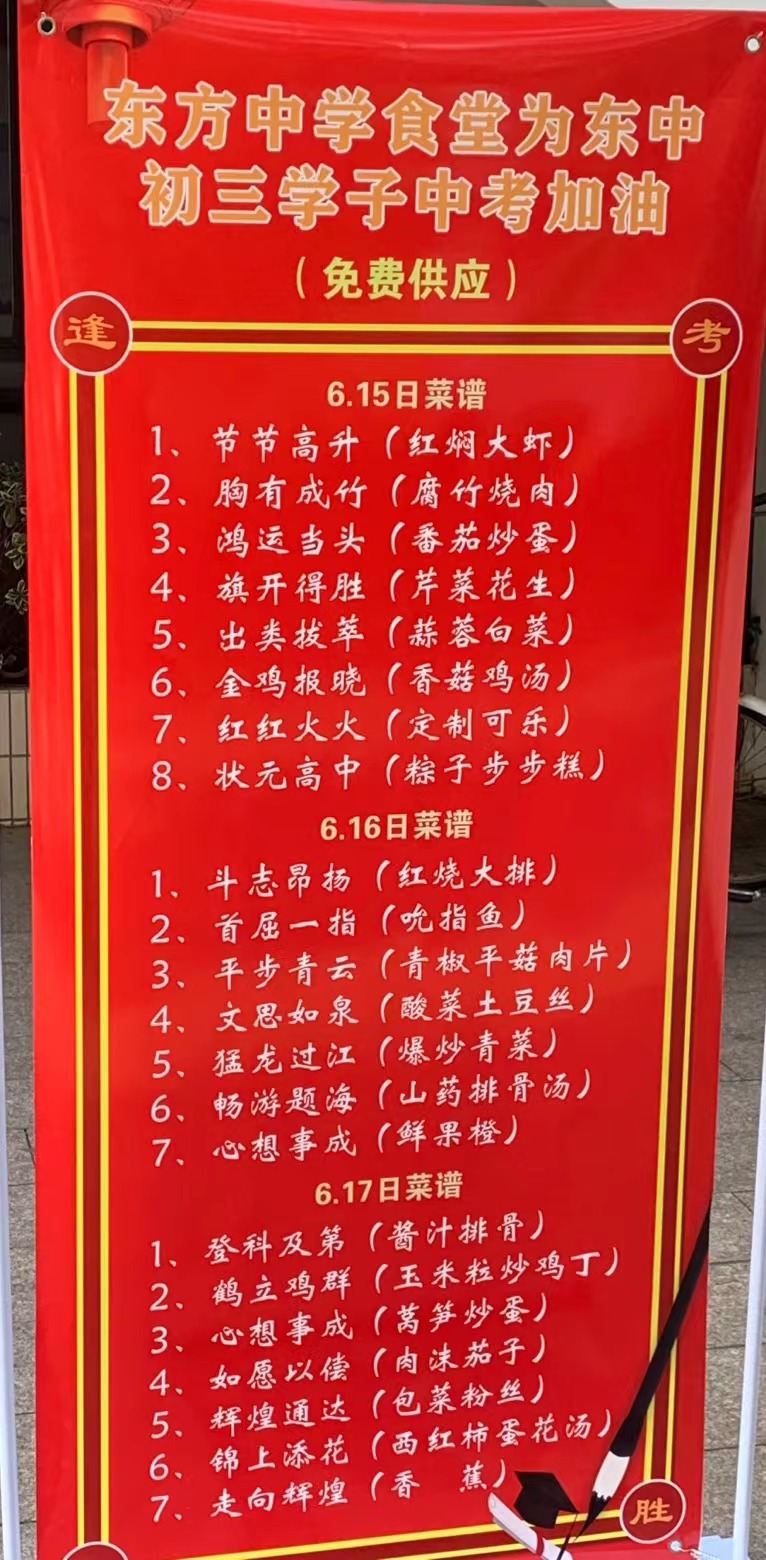 东方中学食堂为东中
初三学子中考加油
（免费供应）
逢 考
6.15日菜谱
1、节节高升（红焖大虾）
2、胸有成竹（腐竹烧肉）
3、鸿运当头（番茄炒蛋）
4、旗开得胜（芹菜花生）
5、出类拔萃（蒜蓉白菜）
6、金鸡报晓（香菇鸡汤）
7、红红火火（定制可乐）
8、状元高中（粽子步步糕）
6.16日菜谱
1、斗志昂扬（红烧大排）
2、首屈一指（吮指鱼）
3、平步青云（青椒平菇肉片）
4、文思如泉（酸菜土豆丝）
5、猛龙过江（爆炒青菜）
6、畅游题海（山药排骨汤）
7、心想事成（鲜果橙）
6.17日菜谱
1、登科及第（酱汁排骨）
2、鹤立鸡群（玉米粒炒鸡丁）
3、心想事成（莴笋炒蛋）
4、如愿以偿（肉沫茄子）
5、辉煌通达（包菜粉丝）
6、锦上添花（西红柿蛋花汤）
7、走向辉煌（香 蕉）
胜